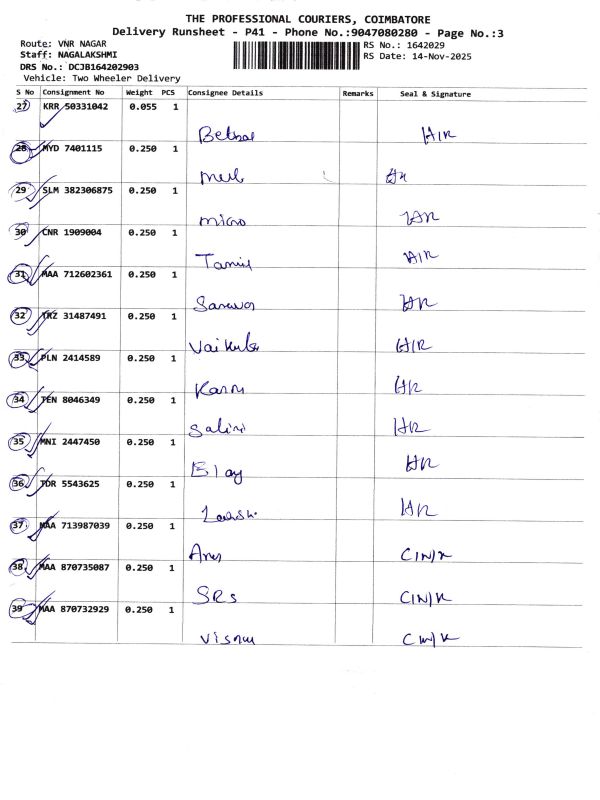 THE PROFESSIONAL COURIERS, COIMBATORE
Delivery Runsheet - P41 - Phone No.:9047080280 - Page No.:3
Route: VNR NAGAR
Staff: NAGALAKSHMI
DRS No.: DCJB164202903
Vehicle: Two Wheeler Delivery
RS No.: 1642029
RS Date: 14-Nov-2025
S No Consignment No Weight PCS Consignee Details Remarks Seal & Signature
27 KRR 50331042 0.055 1
H/R
28 MYD 7401115 0.250 1
HR
29 SLM 382306875 0.250 1
micro HR
30 CNR 1909004 0.250 1
Tamil H/R
31 MAA 712602361 0.250 1
HR
32 TRZ 31487491 0.250 1
H/R
33 PLN 2414589 0.250 1
HR
34 TEN 8046349 0.250 1
Salini HR
35 MNI 2447450 0.250 1
Elay HR
36 TDR 5543625 0.250 1
HR
37 MAA 713987039 0.250 1
38 MAA 870735087 0.250 1
SRS
39 MAA 870732929 0.250 1